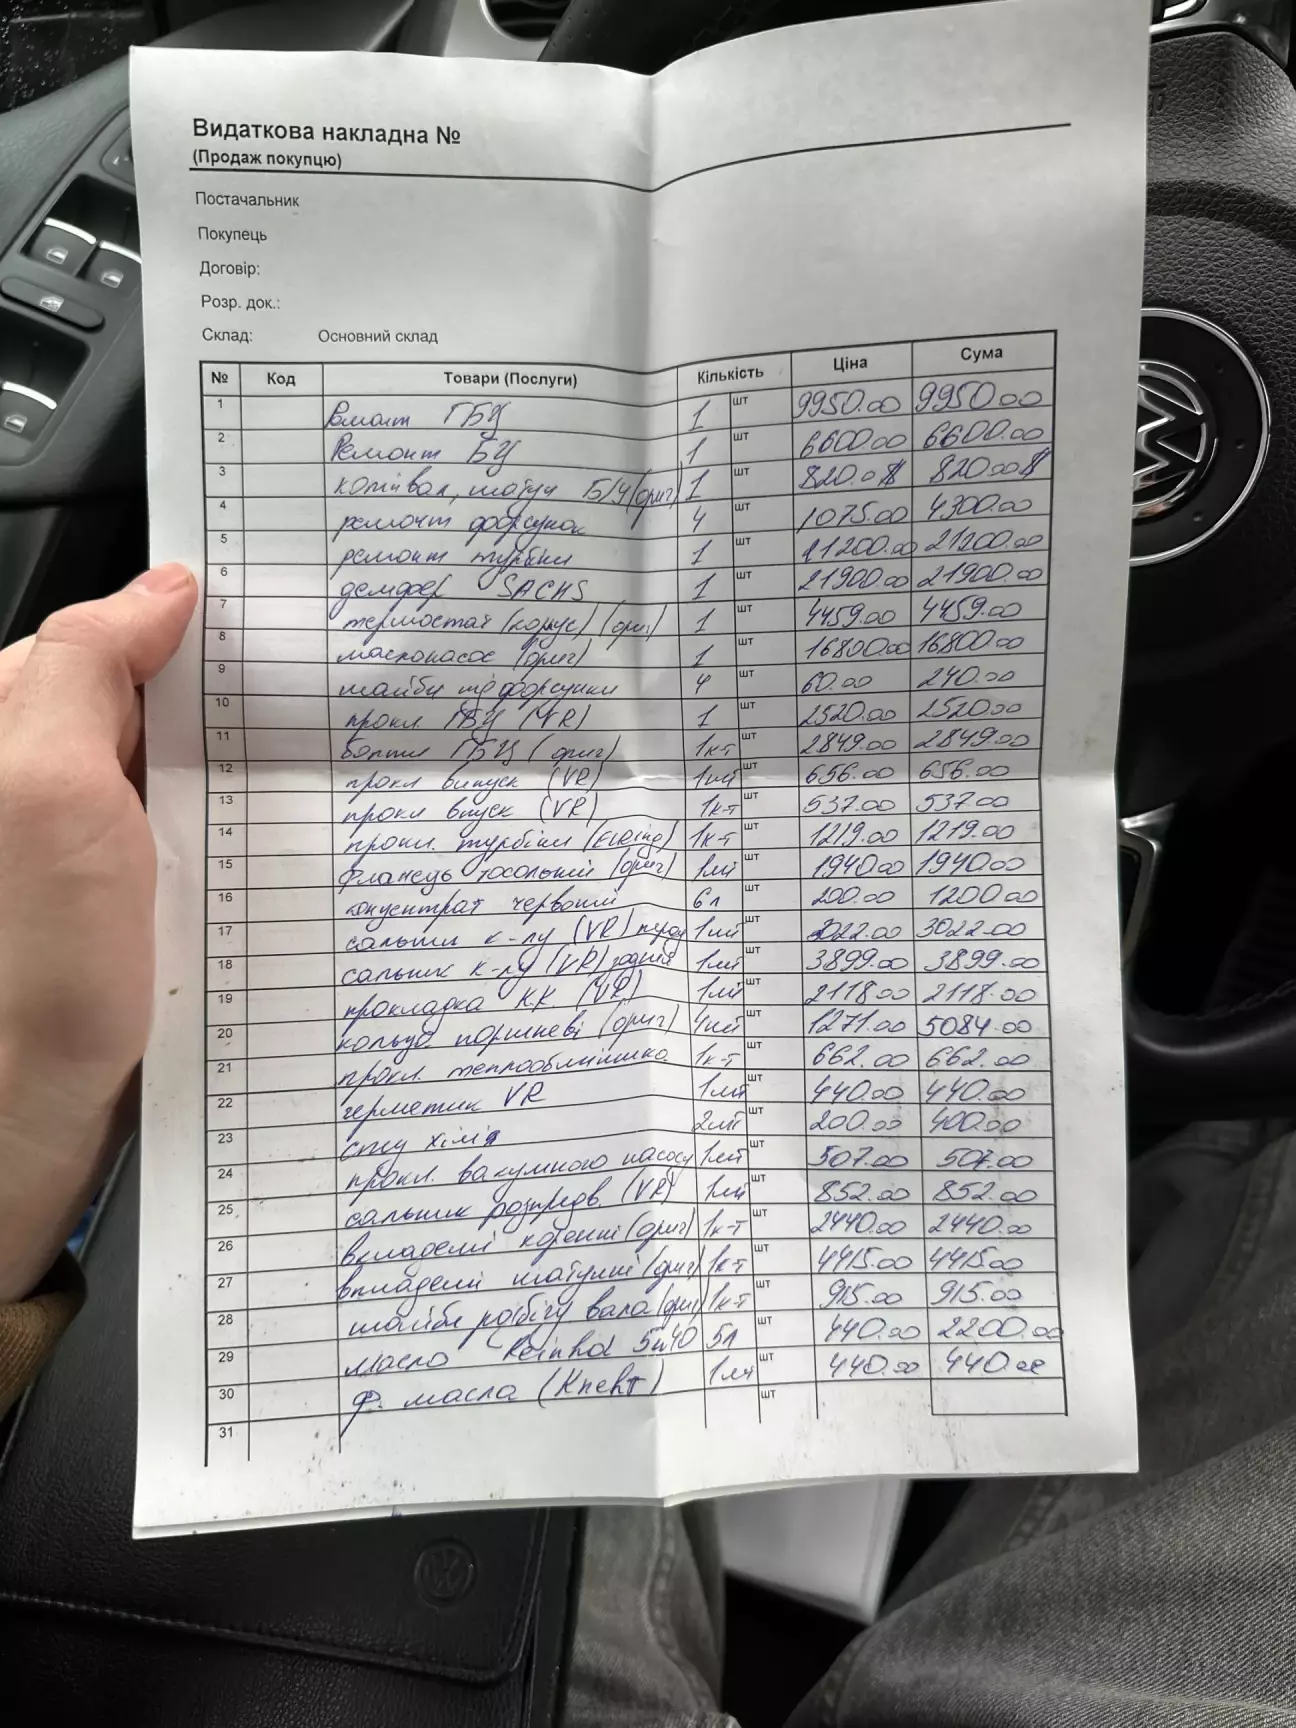 Видаткова накладна №
(Продаж покупцю)
Постачальник
Покупець
Договір:
Розр. док.:
Склад: Основний склад
№ Код Товари (Послуги) Кількість Ціна Сума
1 Ремонт ГБЦ 1 шт 9950.00 9950.00
2 Ремонт БЦ 1 шт 6600.00 6600.00
3 колінвал, шатун Б/У (ориг) 1 шт 820.0$ 820.00$
4 ремонт форсунок 4 шт 1075.00 4300.00
5 ремонт турбіни 1 шт 21200.00
6 демфер SACHS 1 шт 21900.00 21900.00
7 термостат (корпус) (ориг) 1 шт 4459.00 4459.00
8 маслонасос (ориг) 1 шт 16800.00 16800.00
9 шайби під форсунки 4 шт 60.00 240.00
10 прокл ГБЦ (VR) 1 шт 2520.00 2520.00
11 болти ГБЦ (ориг) 1к-т шт 2849.00 2849.00
12 прокл випуск (VR) 1шт шт 656.00 656.00
13 прокл впуск (VR) 1к-т шт 537.00 537.00
14 прокл. турбіни (Elring) 1к-т шт 1219.00 1219.00
15 Фланець тосольний (ориг) 1шт шт 1940.00 1940.00
16 концентрат червоний 6л шт 200.00 1200.00
17 сальник к-лу (VR) перед 1шт шт 3022.00 3022.00
18 сальник к-лу (VR) задній 1шт шт 3899.00 3899.00
19 прокладка КК (VR) 1шт шт 2118.00 2118.00
20 кольца поршневі (ориг) 4шт шт 1271.00 5084.00
21 прокл. теплообмінника 1к-т шт 662.00 662.00
22 герметик VR 1шт шт 440.00 440.00
23 спец хімія 2шт шт 200.00 400.00
24 прокл. вакумного насосу 1шт шт 507.00 507.00
25 сальник розпредв. (VR) 1шт шт 852.00 852.00
26 вкладені корінні (ориг) 1к-т шт 2440.00 2440.00
27 вкладені шатунні (ориг) 1к-т шт 4415.00 4415.00
28 шайби розбігу вала (ориг) 1к-т шт 915.00 915.00
29 Масло Reinhol 5w40 5л шт 440.00 2200.00
30 Ф. масла (Knecht) 1шт шт 440.00 440.00
31 шт